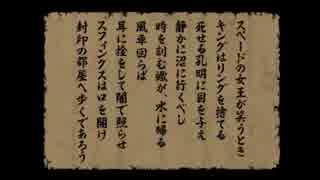 スペードの女王が笑うとき
キングはリングを捨てる
死せる孔明に目をふえ
静かに沼に行くべし
時を刻む蠍が、水に帰る
風車回らば
耳に栓をして闇で照らせ
スフィンクスは口を開け
封印の部屋へ歩くであろう